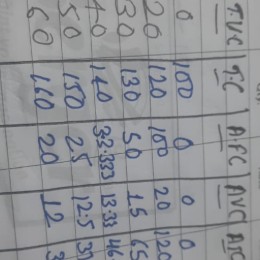 TVC TC AFC AVC ATC
0 100 0 0 0
20 120 100 20 120
30 130 50 15 65
40 140 33.333 13.33 46.
50 150 25 12.5 37
60 160 20 12 3